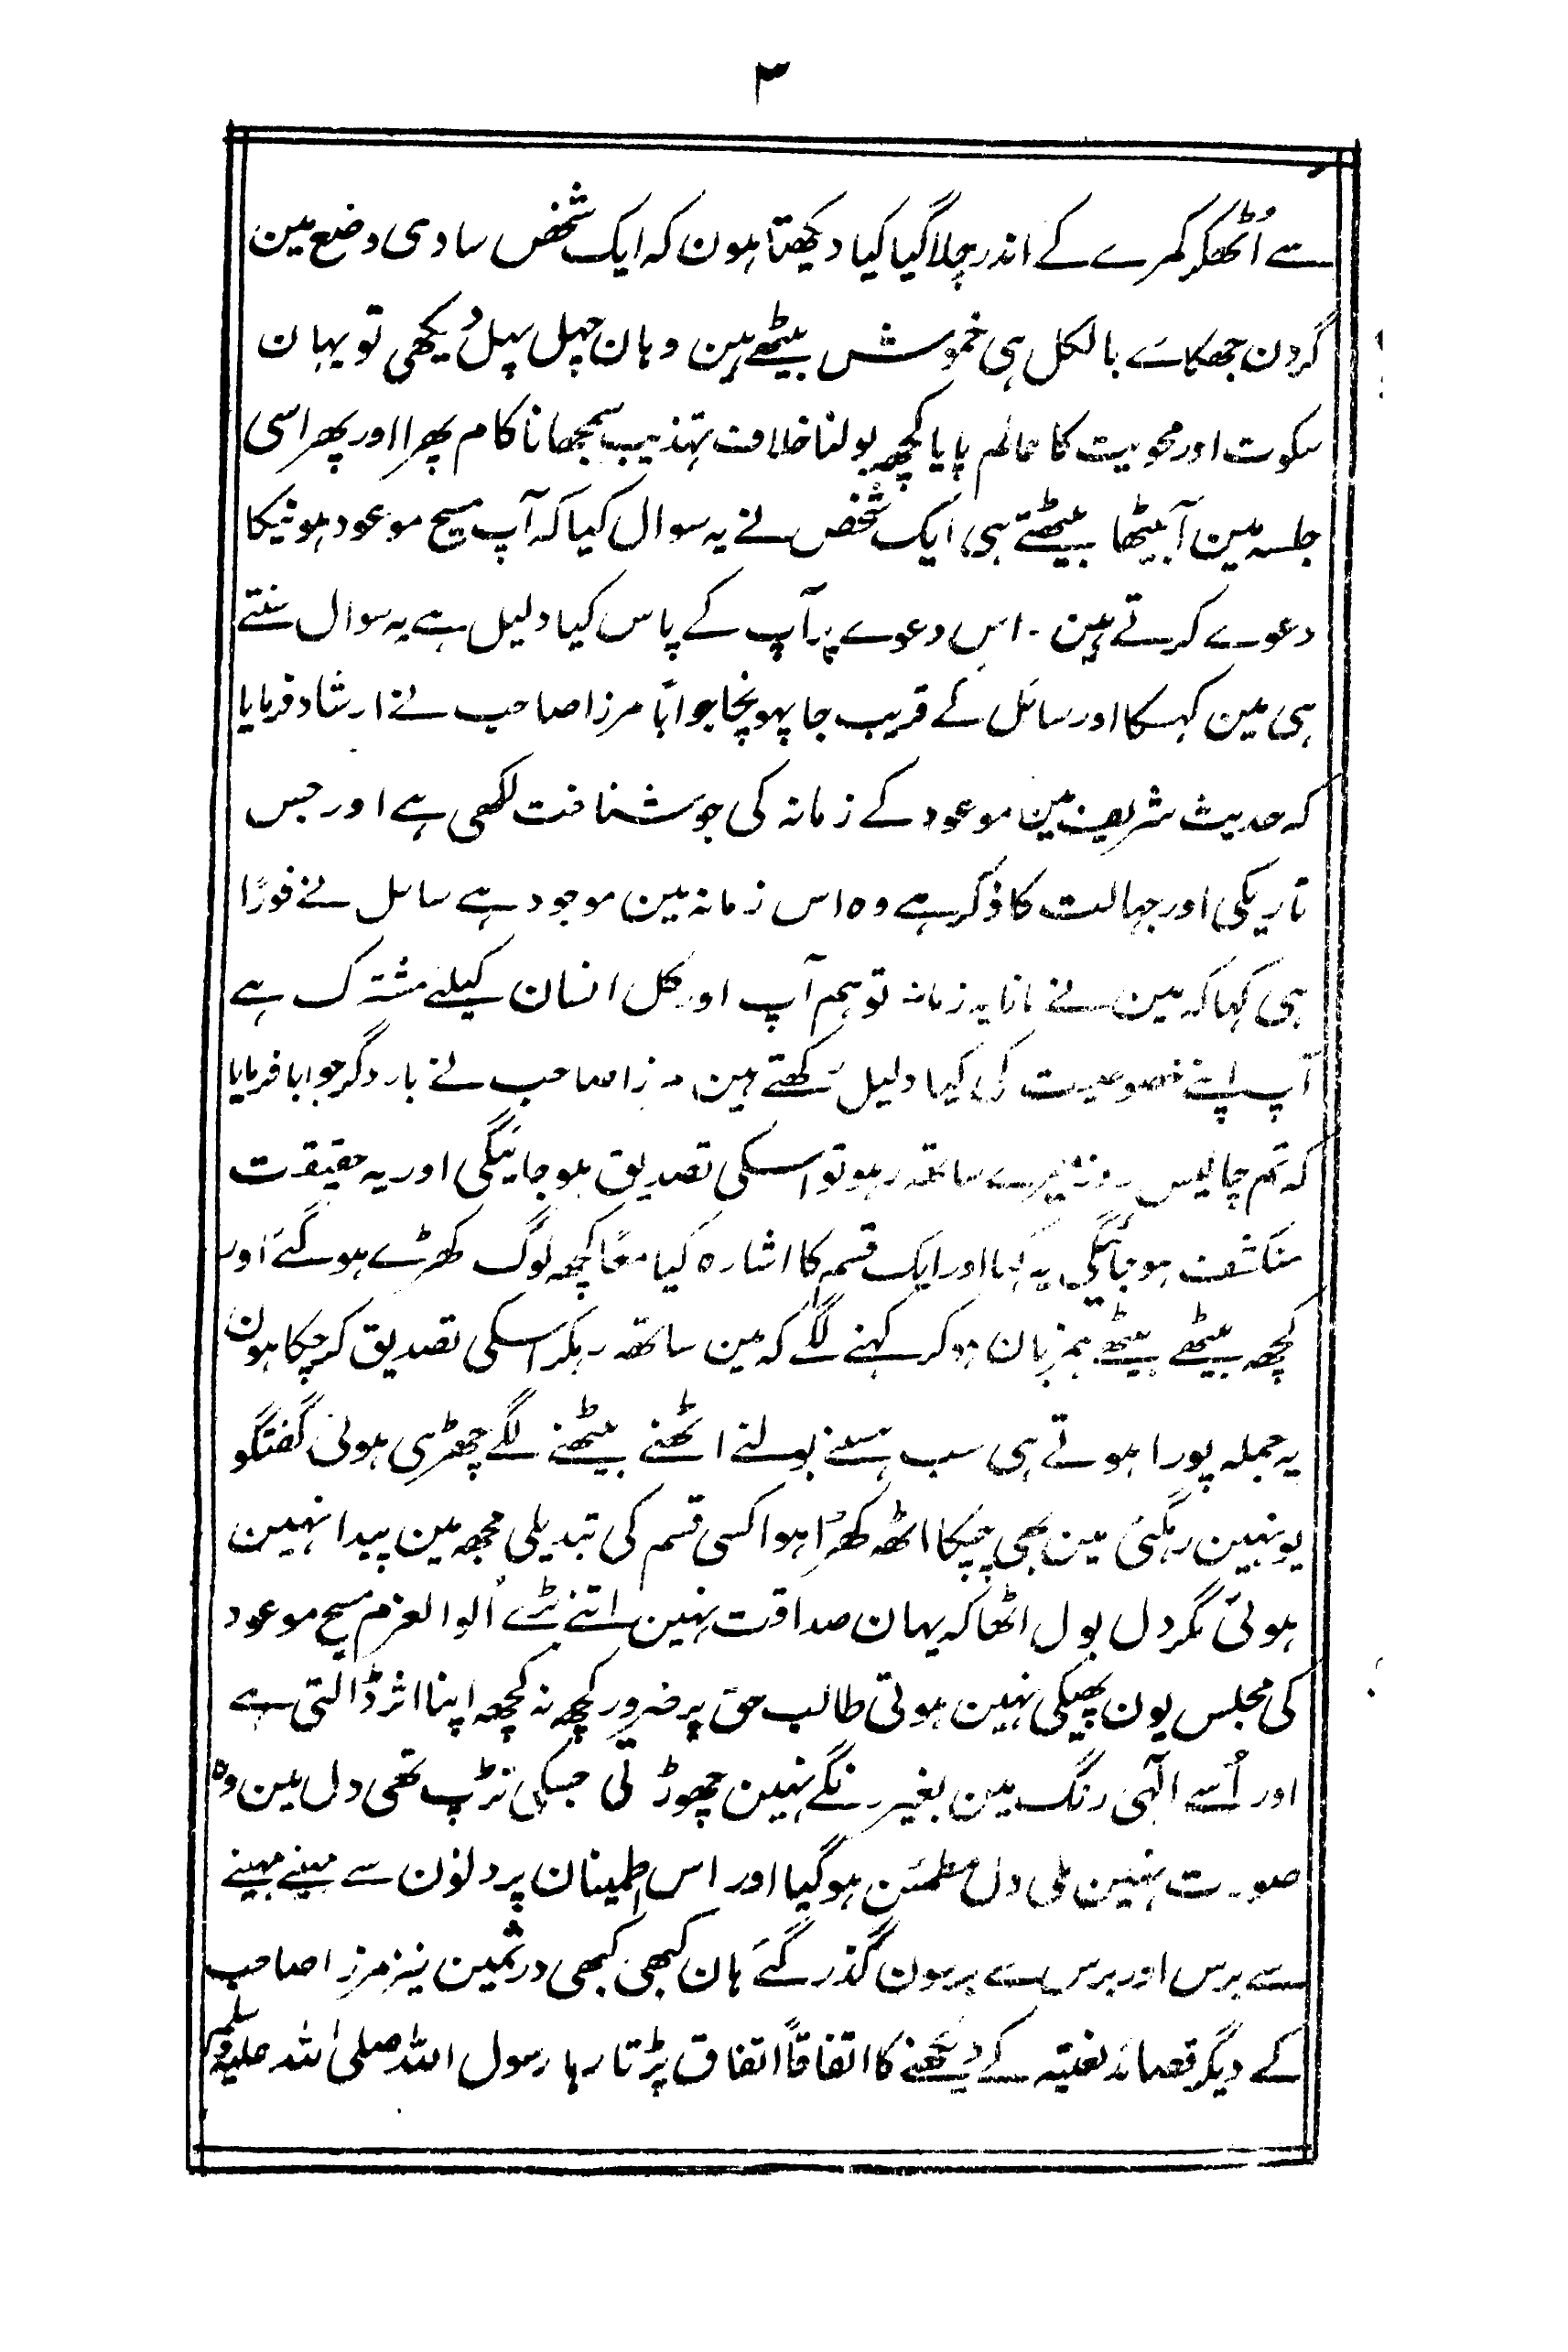 ۳
سے اُٹھکر کمرے کے اندر چلا گیا کیا دیکھتا ہون کہ ایک شخص سادی وضع مین
گردن جھکائے بالکل ہی خموش بیٹھے ہین وہان چہل پہل دیکھی تو یہان
سکوت اور محویت کا عالم پایا کچھ بولنا خلاف تہذیب سمجھا ناکام پھرا اور پھر اسی
جلسہ مین آ بیٹھا بیٹھتے ہی ایک شخص نے یہ سوال کیا کہ آپ مسیح موعود ہونیکا
دعوے کرتے ہین ۔ اس دعوے پر آپ کے پاس کیا دلیل ہے یہ سوال سنتے
ہی مین کھسکا اور سائل کے قریب جا پہونچا جواباً مرزا صاحب نے ارشاد فرمایا
کہ حدیث شریف مین موعود کے زمانہ کی جو شناخت لکھی ہے اور جس
تاریکی اور جہالت کا ذکر ہے وہ اس زمانہ مین موجود ہے سائل نے فوراً
ہی کہا کہ مین نے مانا یہ زمانہ تو ہم آپ اور کل انسان کیلئے مشترک ہے
آپ اپنے خصوصیت کی کیا دلیل رکھتے ہین مرزا صاحب نے بار دگر جوابا فرمایا
کہ تم چالیس روز میرے ساتھ رہو تو اسکی تصدیق ہو جائیگی اور یہ حقیقت
منکشف ہو جائیگی یہ کہا اور ایک قسم کا اشارہ کیا معاً کچھ لوگ کھڑے ہو گئے اور
کچھ بیٹھے بیٹھے ہمزبان ہو کر کہنے لگے کہ مین ساتھ رہکر اسکی تصدیق کر چکا ہون
یہ جملہ پورا ہوتے ہی سب ہنسنے بولنے اٹھنے بیٹھنے لگے چھڑی ہوئی گفتگو
یونہین رہگئی مین بھی چپکا اٹھ کھڑا ہوا کسی قسم کی تبدیلی مجھ مین پیدا نہین
ہوئی مگر دل بول اٹھا کہ یہان صداقت نہین اتنے بڑے اُلوالعزم مسیح موعود
کی مجلس یون پھیکی نہین ہوتی طالب حق پر ضرور کچھ نہ کچھ اپنا اثر ڈالتی ہے
اور اُسے الٰہی رنگ مین بغیر رنگے نہین چھوڑتی جسکی تڑپ تھی دل مین وہ
صورت نہین ملی دل مطمئن ہو گیا اور اس اطمینان پر دنون سے مہینے مہینے
سے برس اور برس سے برسون گذر گئے ہان کبھی کبھی در ثمین نیز مرزا صاحب
کے دیگر قصائد نعتیہ کے دیکھنے کا اتفاقاً اتفاق پڑتا رہا رسول اللہ صلی اللہ علیہ وسلم